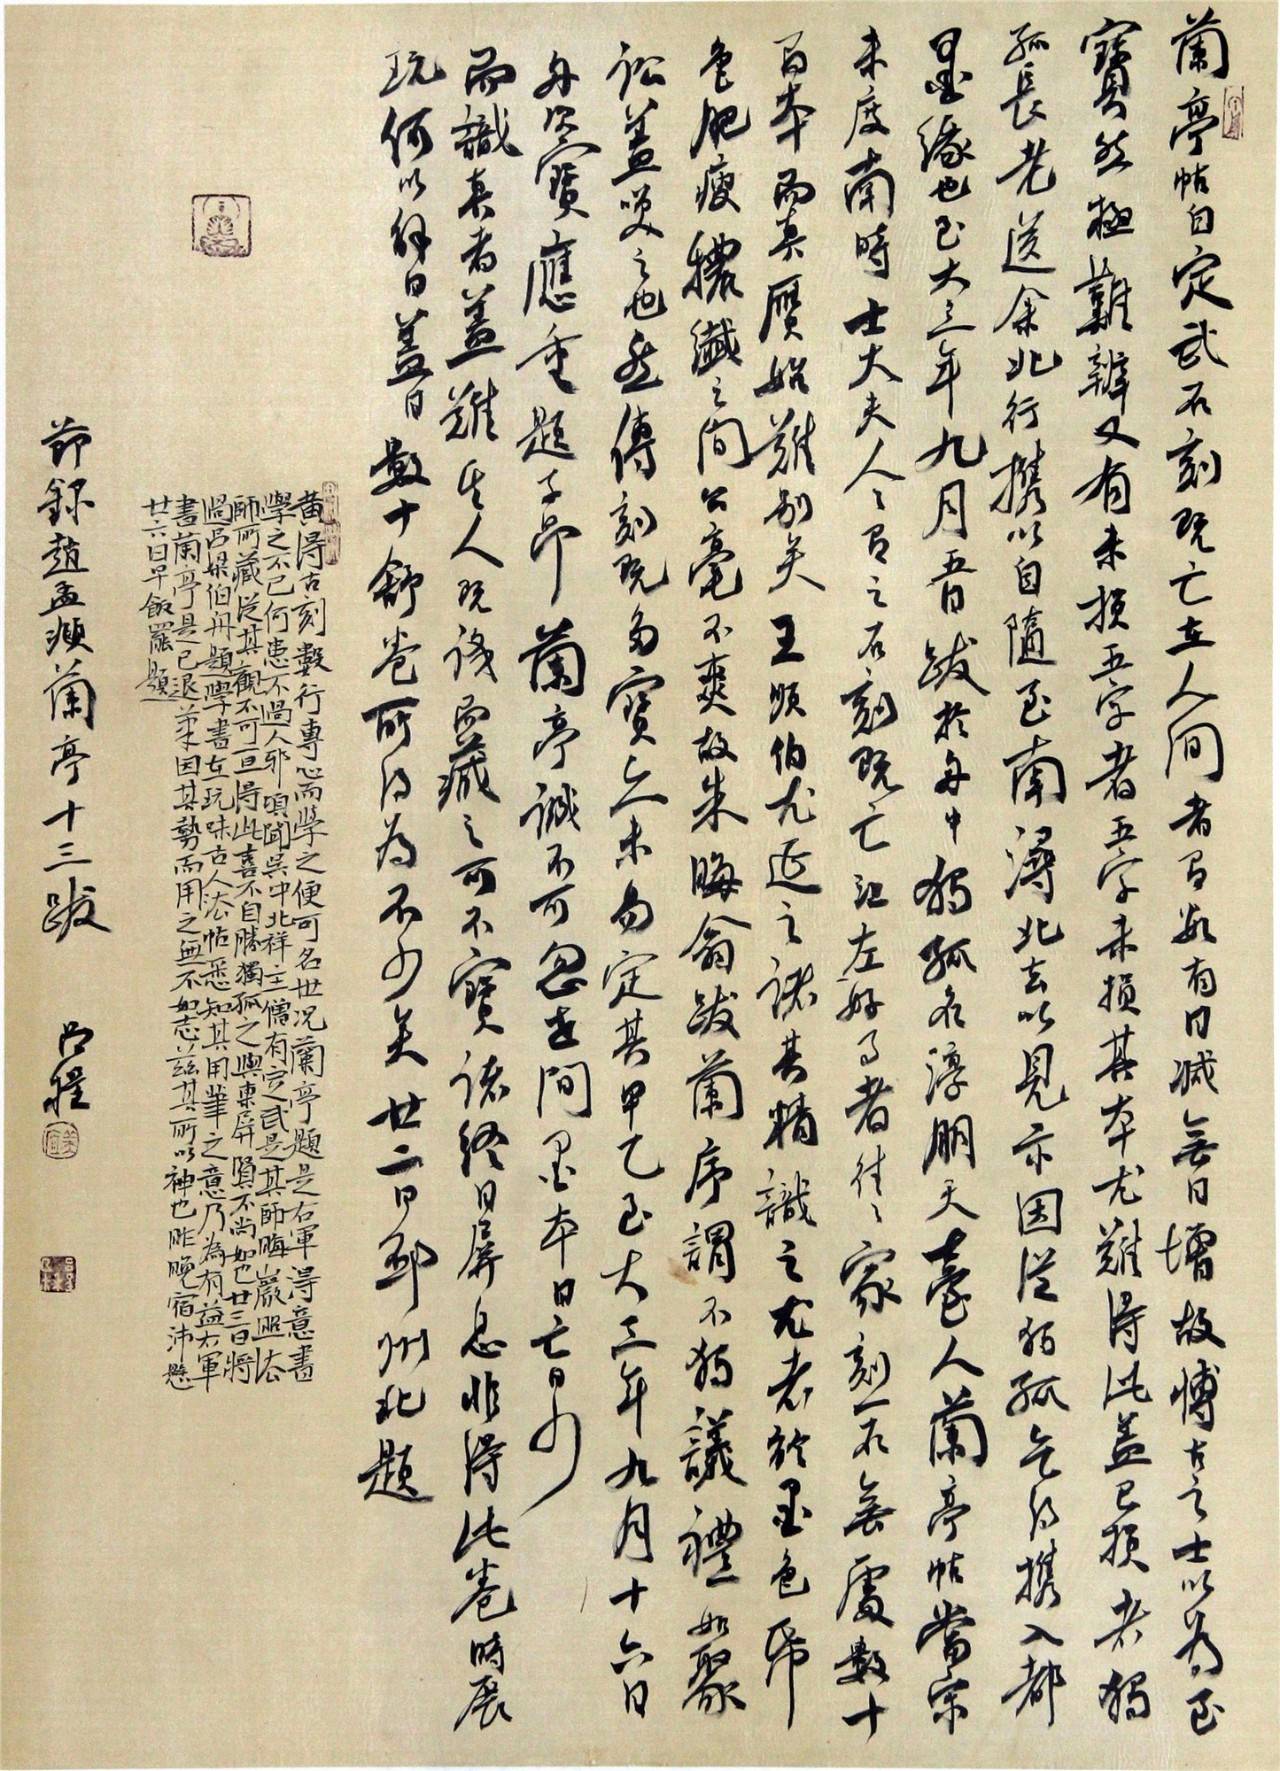 蘭亭帖自定武石刻既亡在人間者有數有日減無日增故博古之士以為至
寶然極難辨又有未損五字者五字未損其本尤難得此蓋已損者獨
孤長老送余北行攜以自隨至南潯北出以見示因從獨孤乞得攜入都
是日墨緣也至大三年九月五日跋於舟中獨孤名淳朋天台人蘭亭帖當宋
未度南時士大夫人人有之石刻既亡江左好事者往往家刻一石無慮數十
百本而真贋始難別矣王順伯尤延之諸其精識之尤者於墨色紙
色肥瘦穠纖之間分毫不爽故朱晦翁跋蘭序謂不獨議禮如聚
訟蓋笑之也然傳刻既多寶亦未易定其甲乙至大三年九月十六日
舟次寶應重題子昂 蘭亭誠不可忽世間墨本日亡日少
而識真者蓋難其人既識而藏之可不寶諸終日屏息非得此卷時展
玩何以解日蓋日數十舒卷所得為不少矣廿二日邳州北題
黃得古刻數行專心而學之便可名世況蘭亭題是右軍得意書
學之不已何患不過人耶頃聞吳中北禪主僧有定武是其師晦巖照法
師所藏從其觀不可一旦得此喜不自勝獨孤之與東屏隕不尚如也廿三日將
過呂梁泊舟題學書在玩味古人法帖悉知其用筆之意乃為有益右軍
書蘭亭是已退筆因其勢而用之無不如志茲其所以神也昨晚宿沛縣
廿六日早飯罷題
節錄趙孟頫蘭亭十三跋 呂程